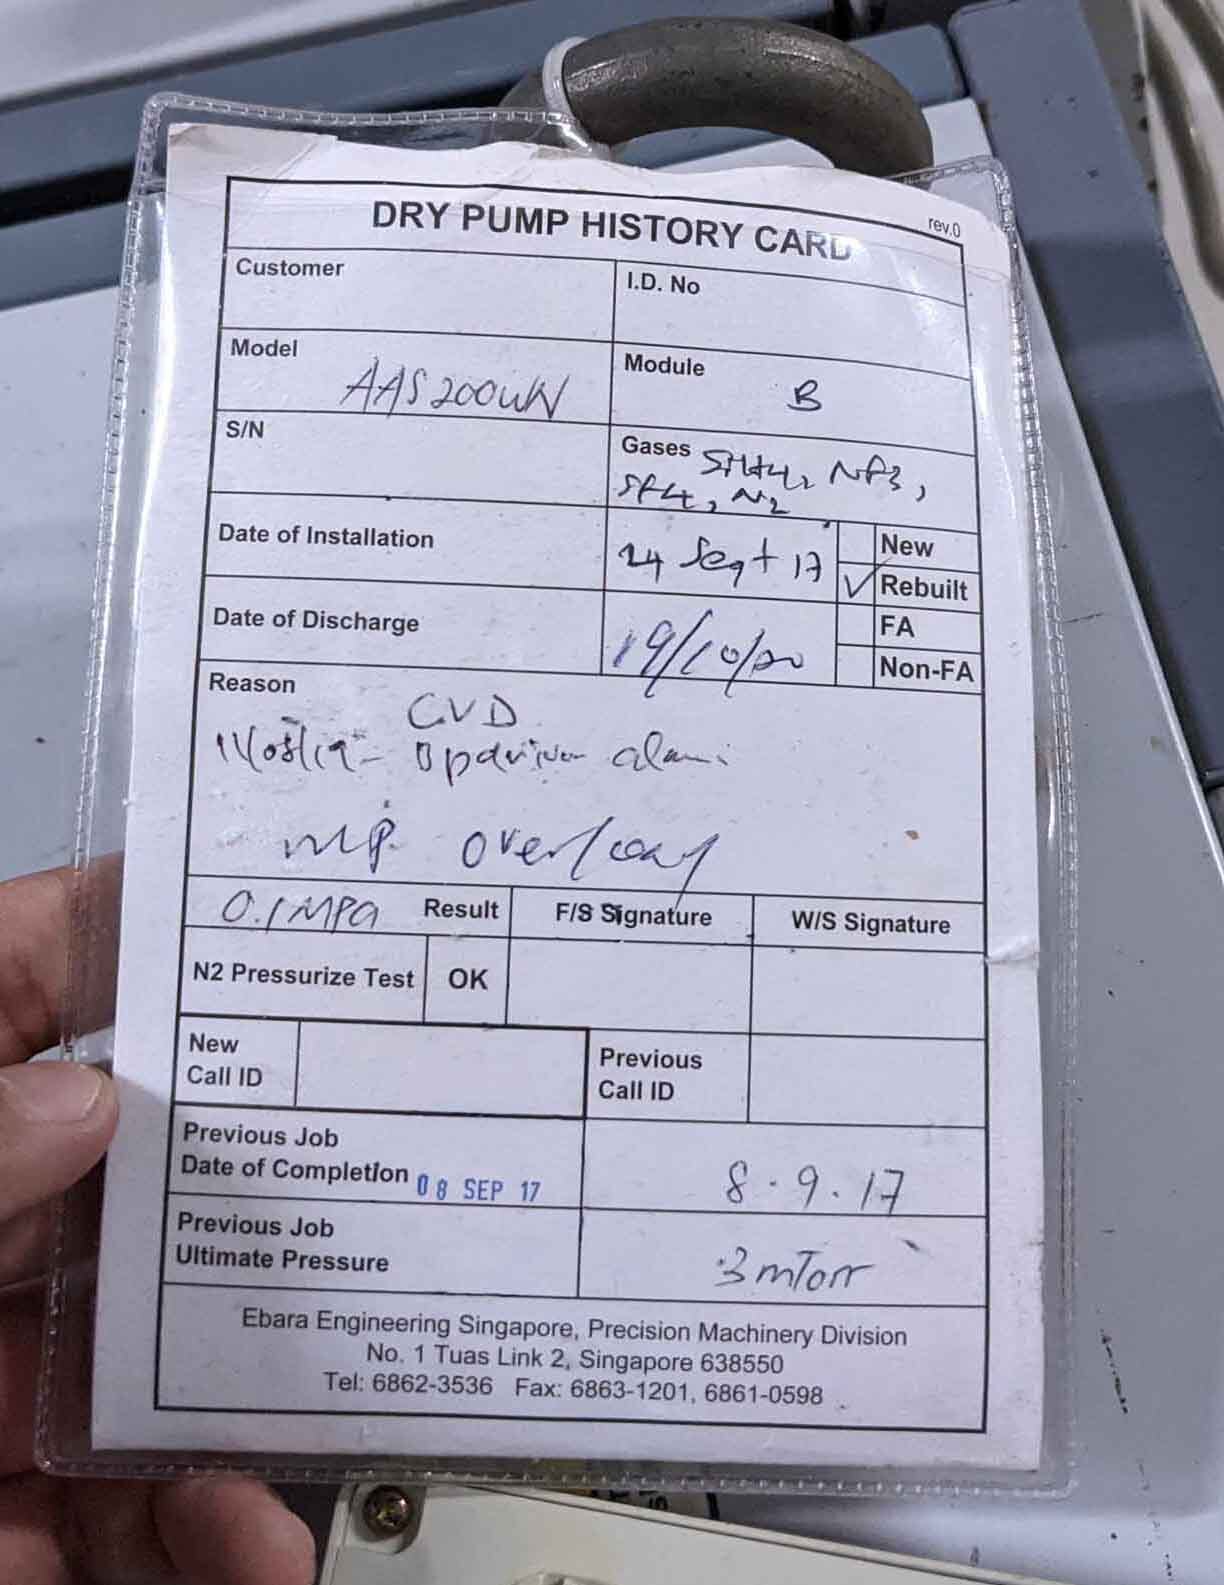 DRY PUMP HISTORY CARD
rev.0
Customer
I.D. No
Model AAS200WN
Module B
S/N
Gases SiH4, NF3,
SF4, N2
Date of Installation 24 Sept 17
New
Rebuilt
Date of Discharge 19/10/20
FA
Non-FA
Reason
CVD
11/08/19 - BP driver alarm
MP. overload
0.1MPa Result
F/S Signature
W/S Signature
N2 Pressurize Test OK
New
Call ID
Previous
Call ID
Previous Job
Date of Completion 08 SEP 17
8.9.17
Previous Job
Ultimate Pressure
3mTorr
Ebara Engineering Singapore, Precision Machinery Division
No. 1 Tuas Link 2, Singapore 638550
Tel: 6862-3536 Fax: 6863-1201, 6861-0598